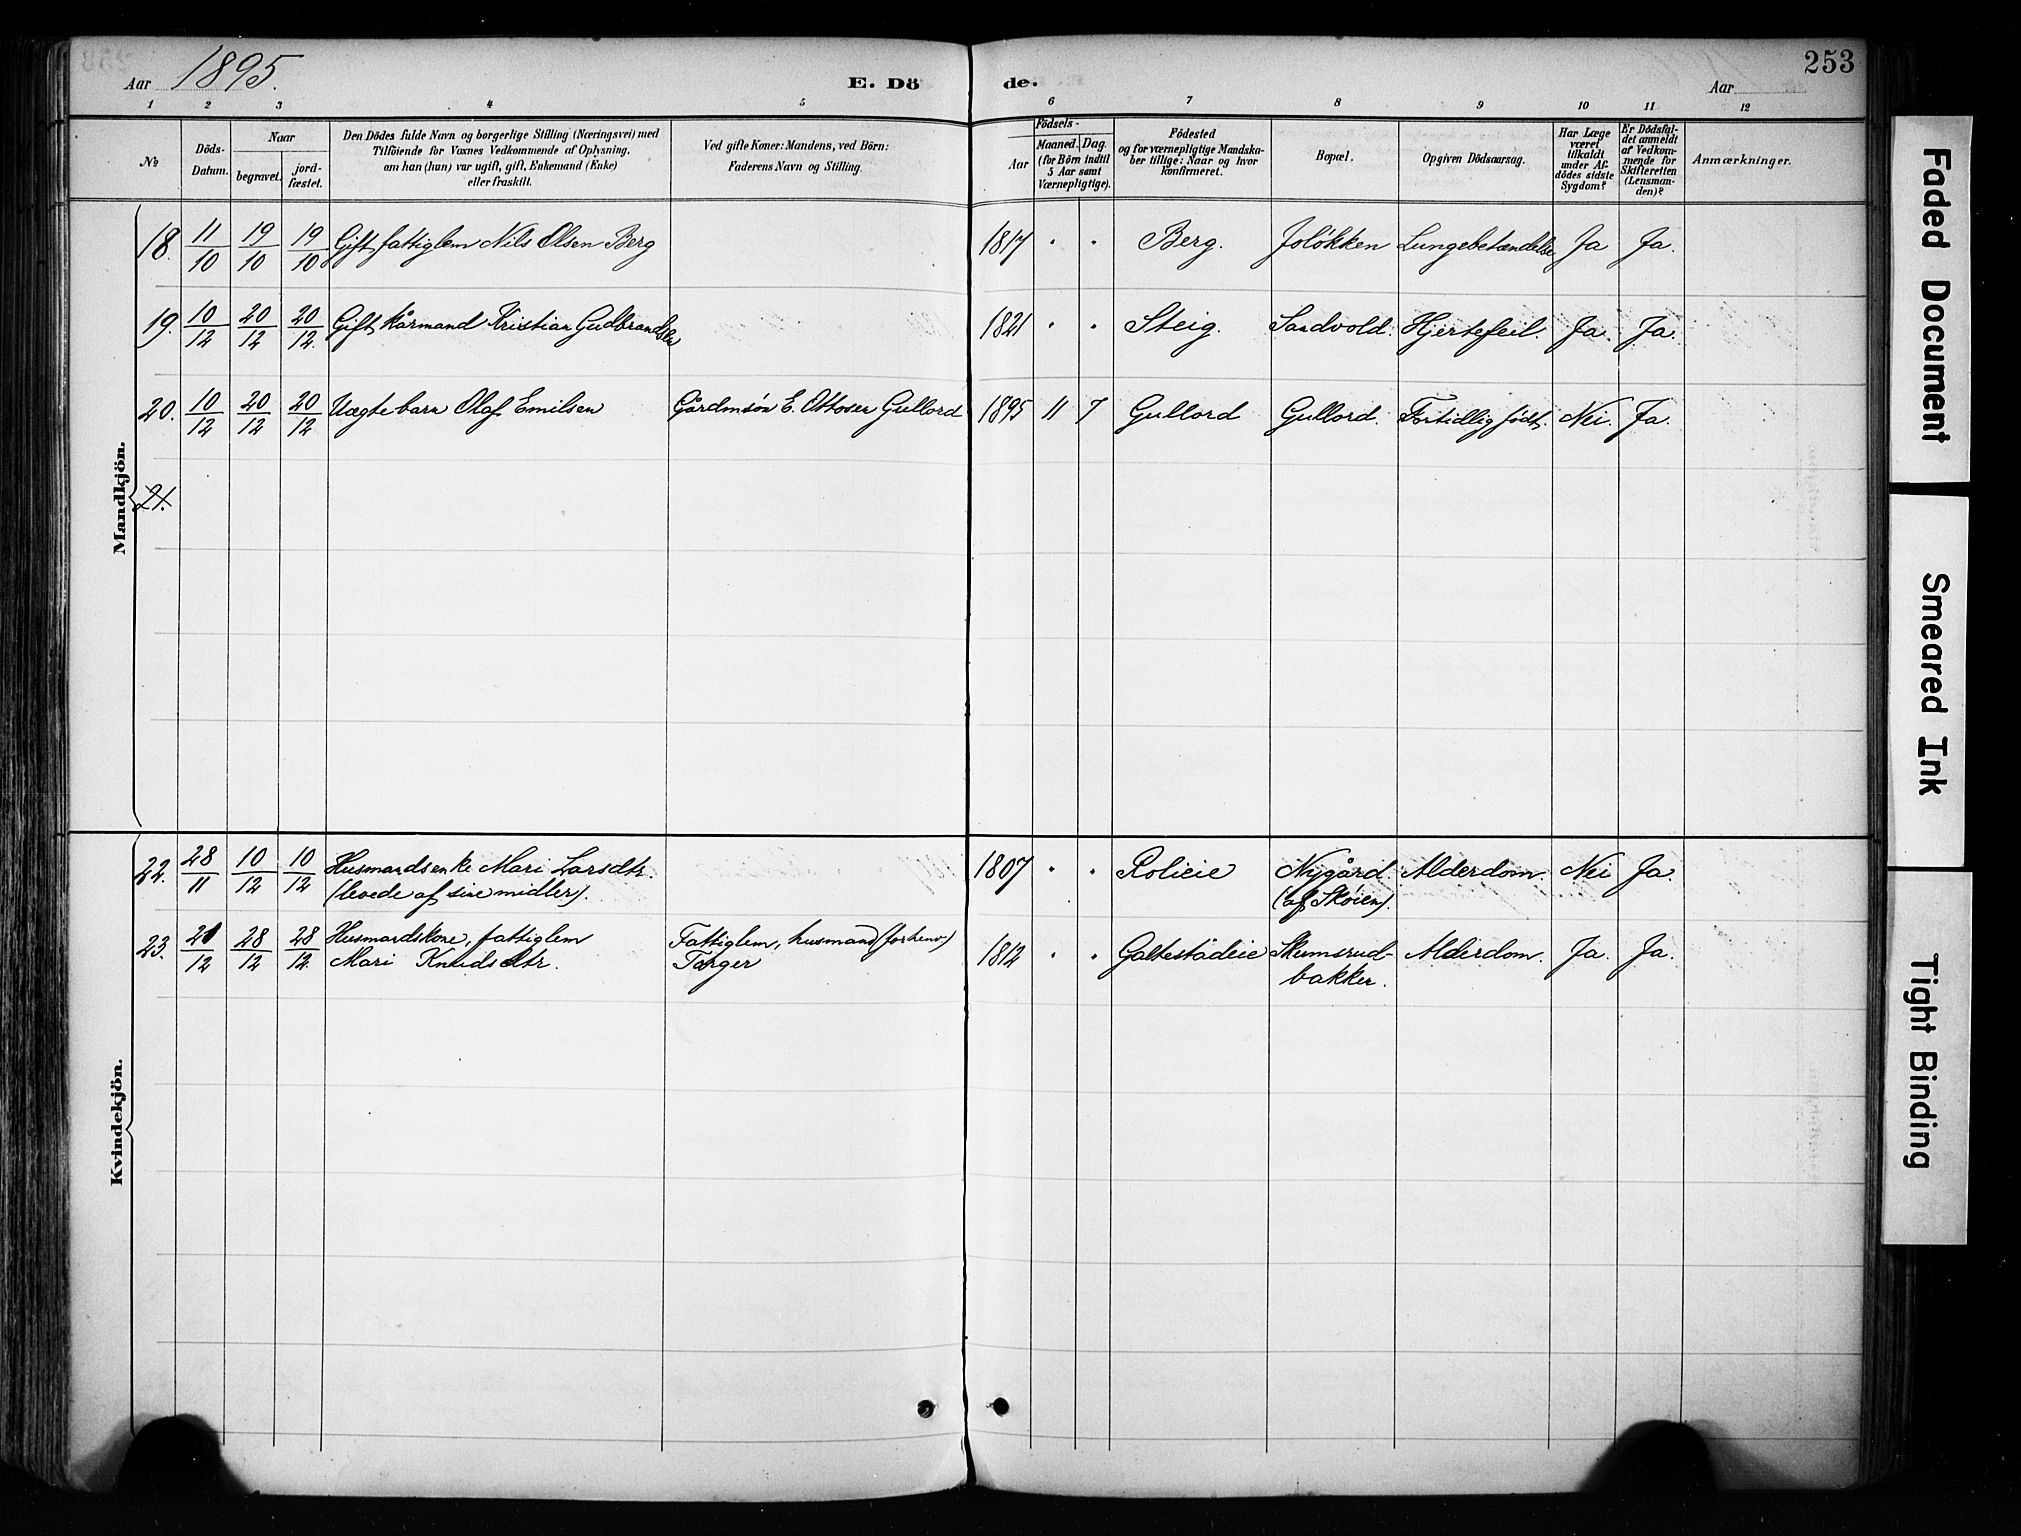 Aar 1895.
E. Dö
de.
Aar
253
1 2 3 4 5 6 7 8 9 10 11 12
№
Döds-
Datum.
Naar
begravet.
jord-
fæstet.
Den Dödes fulde Navn og borgerlige Stilling (Næringsvei) med
Tilföiende for Voxnes Vedkommende af Oplysning,
om han (hun) var ugift, gift, Enkemand (Enke)
eller fraskilt.
Ved gifte Koner: Mandens, ved Börn:
Faderens Navn og Stilling.
Födsels-
Aar
Maaned.
Dag.
(for Börn indtil
5 Aar samt
Værnepligtige).
Födested
og for værnepligtige Mandska-
ber tillige: Naar og hvor
konfirmeret.
Bopæl.
Opgiven Dödsaarsag.
Har Læge
været
tilkaldt
under Af-
dödes sidste
Sygdom?
Er Dödsfal-
det anmeldt
af Vedkom-
mende for
Skifteretten
(Lensman-
den)?
Anmærkninger.
Mandkjön.
18. 11/10 19/10 19/10 Gift fattiglem Nils Olsen Berg 1817 " " Berg. Joløkken Lungebetændelse Ja Ja.
19. 10/12 20/12 20/12. Gift kårmand Kristian Gudbrandsen 1821 " " Steig. Sandvold. Hjertefeil. Ja. Ja.
20. 10/12 20/12 20/12 Uægte barn Olaf Emilsen Gårdmsøn E. Ottosen Gullord 1895 11 7 Gullord Gullord. Fortidlig født. Nei. Ja.
21.
Kvindekjön.
22. 28/11 10/12 10/12 Husmandsenke Mari Larsdtr. 1807 " " Rolieie Nygård. Alderdom. Nei Ja.
(levede af sine midler). (af Skøien).
23. 21/12 28/12 28/12. Husmandskone, fattiglem Fattiglem, husmand (forhenv.) 1812 " " Galtestadeie Skumsrud- Alderdom. Ja. Ja.
Mari Knudsdtr. Torger bakken.
Faded Document
Smeared Ink
Tight Binding